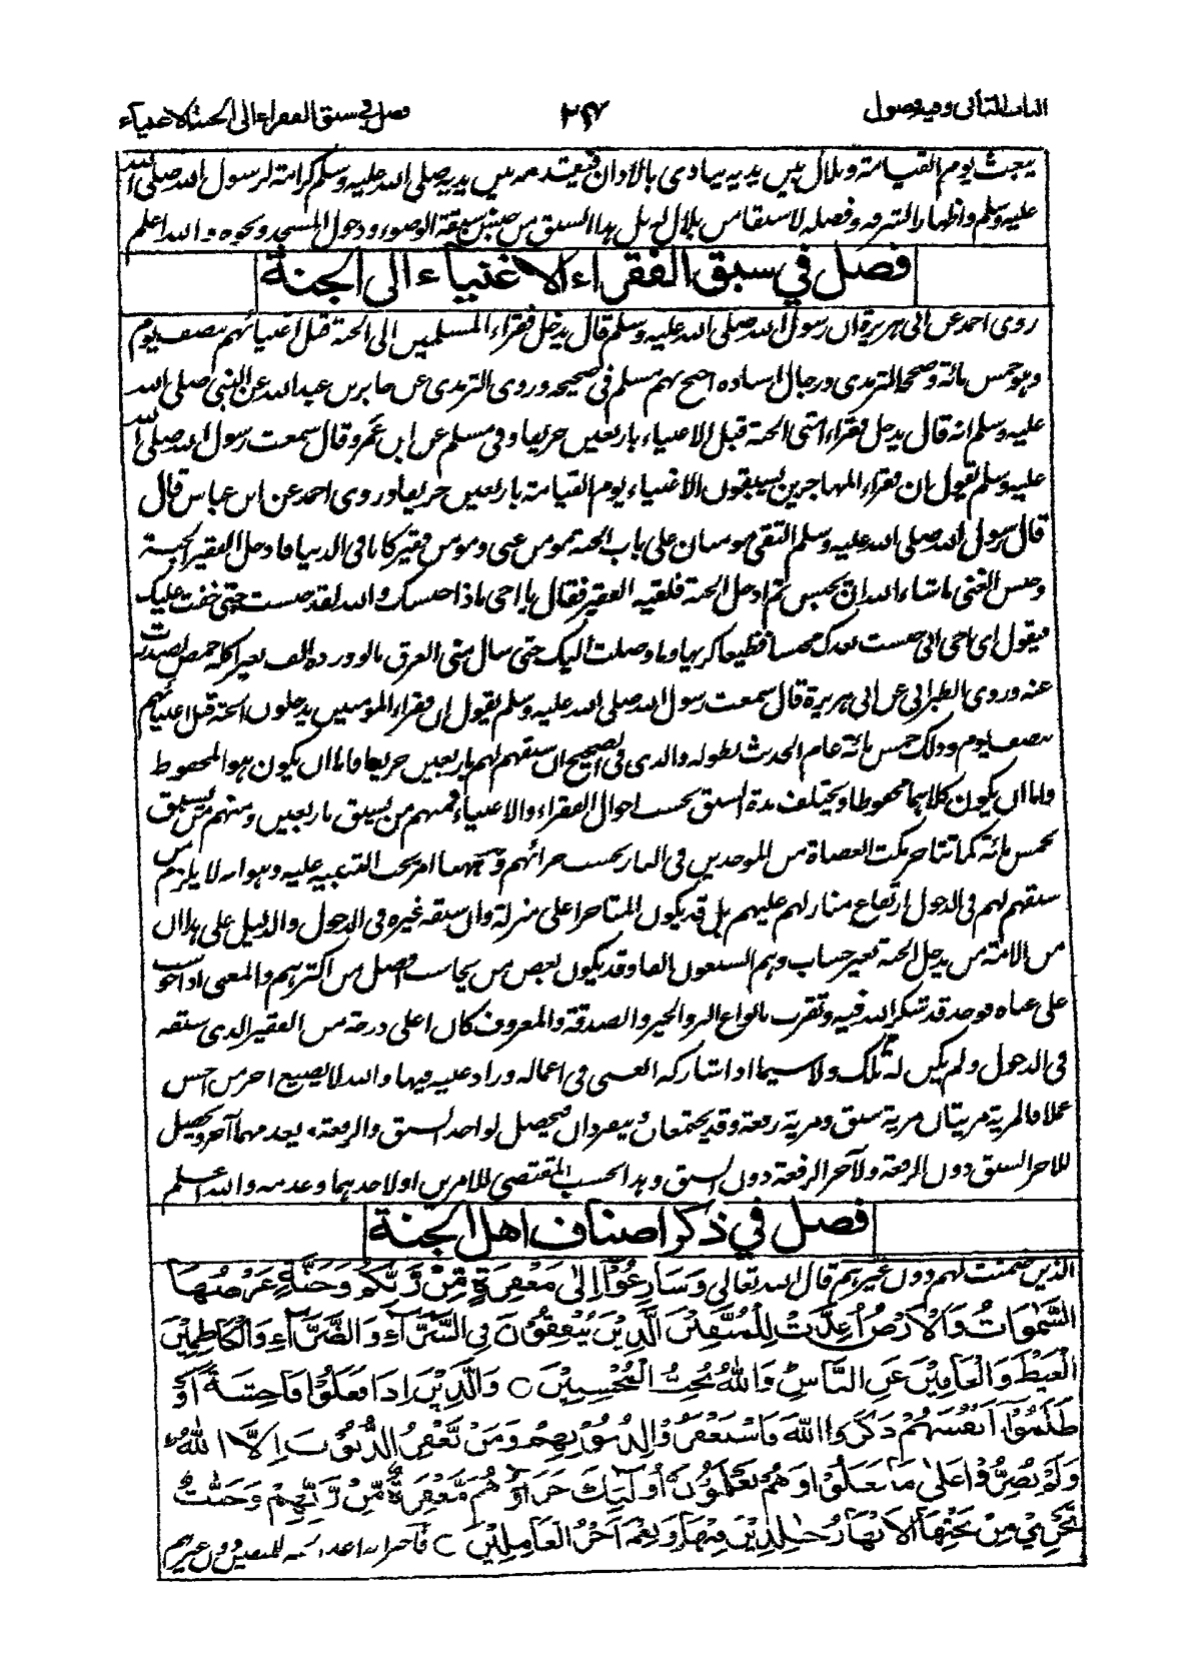 الباب الثاني وفيه فصول ٢٢٧ فصل في سبق الفقراء الى الجنة الاغنياء
يبعث يوم القيامة وبلال بين يديه ينادي بالاذان فيتقدمه بين يديه صلى الله عليه وسلم كرامة لرسول الله صلى الله
عليه وسلم واظهارا لشرفه وفضله لا سبقا من بلال له بل هذا السبق من جنس سبقه الوضوء ودخول المسجد ونحوه والله اعلم
فصل في سبق الفقراء الاغنياء الى الجنة
روى احمد عن ابي هريرة ان رسول الله صلى الله عليه وسلم قال يدخل فقراء المسلمين الى الجنة قبل اغنيائهم بنصف يوم
وهو خمس مائة وصححه الترمذي ورجال اسناده احتج بهم مسلم في صحيحه وروى الترمذي عن جابر بن عبدالله عن النبي صلى الله
عليه وسلم انه قال يدخل فقراء امتي الجنة قبل الاغنياء باربعين خريفا وفي مسلم عن ابن عمرو قال سمعت رسول الله صلى الله
عليه وسلم يقول ان فقراء المهاجرين يسبقون الاغنياء يوم القيامة باربعين خريفا وروى احمد عن ابن عباس قال
قال رسول الله صلى الله عليه وسلم التقى مؤمنان على باب الجنة مؤمن غني ومؤمن فقير كانا في الدنيا فادخل الفقير الجنة
وحبس الغني ما شاء الله ان يحبس ثم ادخل الجنة فلقيه الفقير فقال يا اخي ماذا حبسك والله لقد حبست حتى خفت عليك
فيقول اي اخي اني حبست بعدك محبسا فظيعا كريها وما وصلت اليك حتى سال مني العرق ما لو ورده الف بعير اكلة حمض لصدرت
عنه وروى الطبراني عن ابي هريرة قال سمعت رسول الله صلى الله عليه وسلم يقول ان فقراء المؤمنين يدخلون الجنة قبل اغنيائهم
بنصف يوم وذلك خمس مائة عام الحديث بطوله والذي في الصحيح ان سبقهم لهم باربعين خريفا فاما ان يكون هو المحفوظ
واما ان يكون كلاهما محفوظا ويختلف مدة السبق بحسب احوال الفقراء والاغنياء فمنهم من يسبق باربعين ومنهم من يسبق
بخمس مائة كما تتاخر مكث العصاة من الموحدين في النار بحسب جرائمهم وههنا امر يجب التنبيه عليه وهو انه لا يلزم من
سبقهم لهم في الدخول ارتفاع منازلهم عليهم بل قد يكون المتاخر اعلى منزلة وان سبقه غيره في الدخول والدليل على هذا ان
من الامة من يدخل الجنة بغير حساب وهم السبعون الفا وقد يكون بعض من يحاسب افضل من اكثرهم والمعنى اذا حوسب
على غناه فوجد قد شكر الله فيه وتقرب بانواع البر والخير والصدقة والمعروف كان اعلى درجة من الفقير الذي سبقه
في الدخول ولم يكن له تلك ولا سيما اذا شاركه الغني في اعماله وزاد عليه فيها والله لا يضيع اجر من احسن
عملا فالمزية مزيتان مزية سبق ومزية رفعة وقد يجتمعان وينفردان فيحصل لواحد السبق والرفعة ويعدمهما آخر ويحصل
للاخر السبق دون الرفعة ولآخر الرفعة دون السبق وهذا بحسب المقتضي للامرين او لاحدهما وعدمه والله اعلم
فصل في ذكر اصناف اهل الجنة
الذين ضمنت لهم دون غيرهم قال الله تعالى وَسَارِعُوْا اِلٰى مَغْفِرَةٍ مِّنْ رَّبِّكُمْ وَجَنَّةٍ عَرْضُهَا
السَّمٰوَاتُ وَالْاَرْضُ اُعِدَّتْ لِلْمُتَّقِيْنَ الَّذِيْنَ يُنْفِقُوْنَ فِي السَّرَّآءِ وَالضَّرَّآءِ وَالْكَاظِمِيْنَ
الْغَيْظَ وَالْعَافِيْنَ عَنِ النَّاسِ وَاللّٰهُ يُحِبُّ الْمُحْسِنِيْنَ ○ وَالَّذِيْنَ اِذَا فَعَلُوْا فَاحِشَةً اَوْ
ظَلَمُوْا اَنْفُسَهُمْ ذَكَرُوا اللّٰهَ فَاسْتَغْفَرُوْا لِذُنُوْبِهِمْ وَمَنْ يَّغْفِرُ الذُّنُوْبَ اِلَّا اللّٰهُ
وَلَمْ يُصِرُّوْا عَلٰى مَا فَعَلُوْا وَهُمْ يَعْلَمُوْنَ اُولٰئِكَ جَزَآؤُهُمْ مَّغْفِرَةٌ مِّنْ رَّبِّهِمْ وَجَنّٰتٌ
تَجْرِيْ مِنْ تَحْتِهَا الْاَنْهَارُ خٰلِدِيْنَ فِيْهَا وَنِعْمَ اَجْرُ الْعَامِلِيْنَ ○ فاخبر انه اعد الجنة للمتقين دون غيرهم